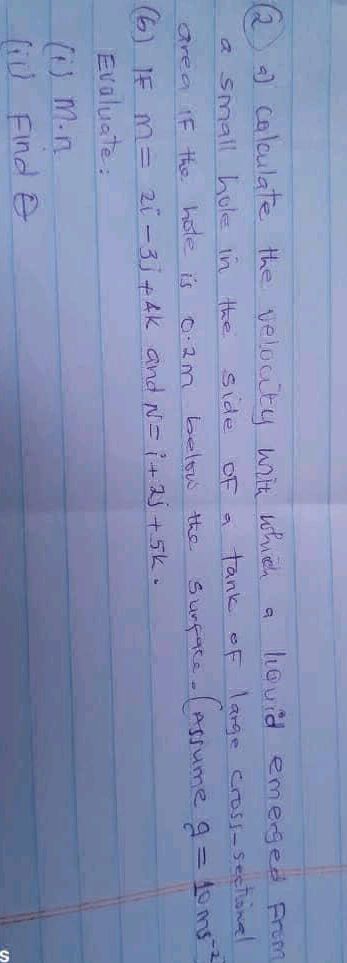 (2) a) calculate the velocity with which a liquid emerged from
a small hole in the side of a tank of large cross-sectional
area if the hole is 0.2m below the surface. (Assume g = 10ms⁻²
(b) If m = 2i - 3j + 4k and N = i + 2j + 5k.
Evaluate:
(i) M.n
(ii) Find θ
s